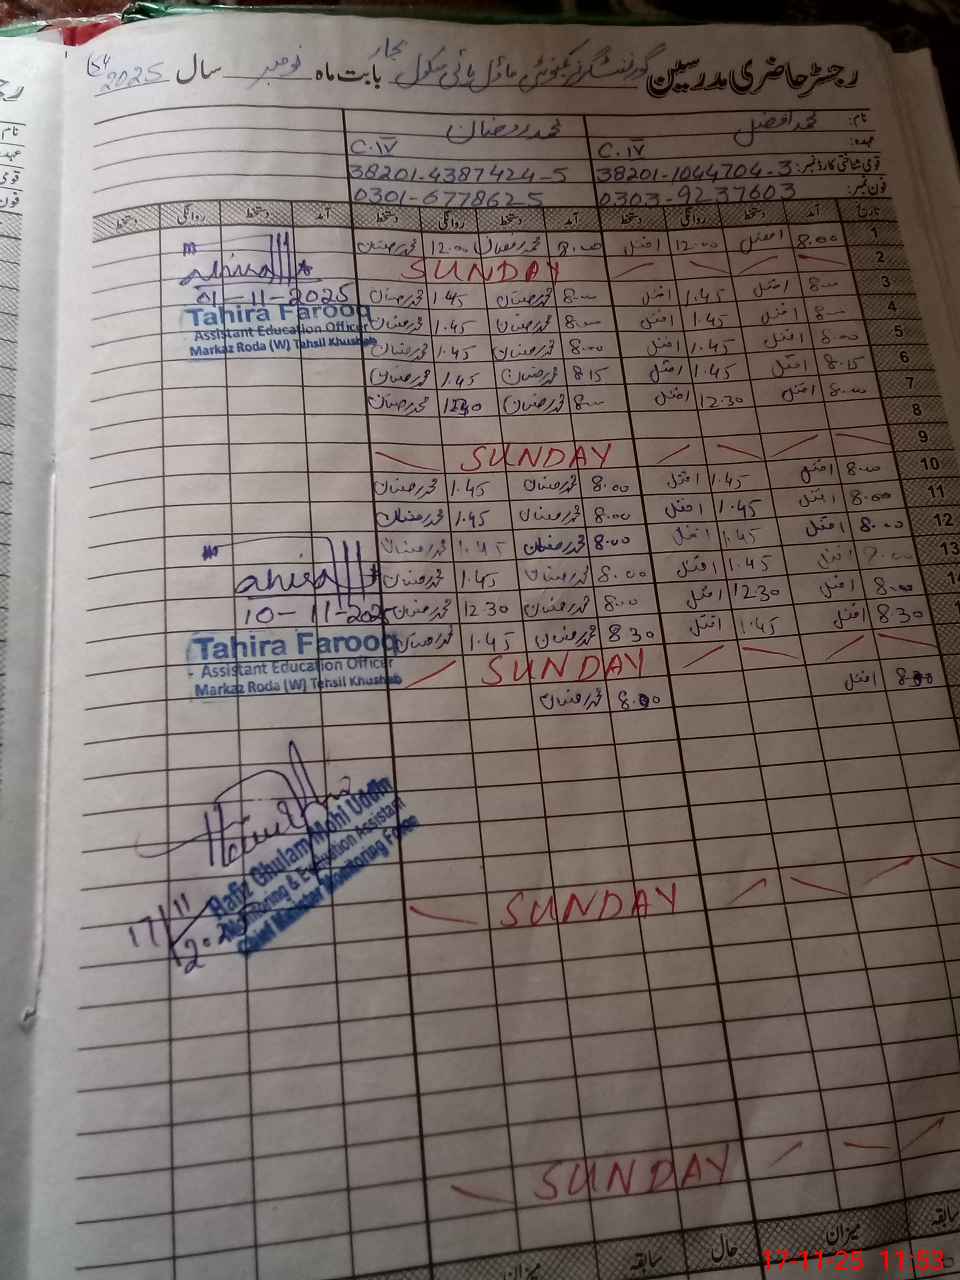 رجسٹر حاضری مدرسین گورنمنٹ گرلز کمیونٹی ماڈل ہائی سکول بجار بابت ماہ نومبر سال 2025
نام: محمد افضل محمد رمضان
عہدہ: C.IV C.IV
قومی شناختی کارڈ نمبر: 38201-1044704-3 38201-4387424-5
فون نمبر: 0303-9237603 0301-6778625
تاریخ آمد دستخط روانگی دستخط آمد دستخط روانگی دستخط آمد دستخط روانگی دستخط
1 8.00 افضل 12.00 افضل 8.00 محمد رمضان 12.00 محمد رمضان
2 SUNDAY
3 8.00 افضل 1.45 افضل 8.00 محمد رمضان 1.45 محمد رمضان
4 8.00 افضل 1.45 افضل 8.00 محمد رمضان 1.45 محمد رمضان
5 8.00 افضل 1.45 افضل 8.00 محمد رمضان 1.45 محمد رمضان
6 8.15 افضل 1.45 افضل 8.15 محمد رمضان 1.45 محمد رمضان
7 8.00 افضل 12.30 افضل 8.00 محمد رمضان 12.30 محمد رمضان
8
9 SUNDAY
10 8.00 افضل 1.45 افضل 8.00 محمد رمضان 1.45 محمد رمضان
11 8.00 افضل 1.45 افضل 8.00 محمد رمضان 1.45 محمد رمضان
12 8.00 افضل 1.45 افضل 8.00 محمد رمضان 1.45 محمد رمضان
13 8.00 افضل 1.45 افضل 8.00 محمد رمضان 1.45 محمد رمضان
8.00 افضل 12.30 افضل 8.00 محمد رمضان 12.30 محمد رمضان
8.30 افضل 1.45 افضل 8.30 محمد رمضان 1.45 محمد رمضان
SUNDAY
8.00 افضل 8.00 محمد رمضان
SUNDAY
SUNDAY
01-11-2025
Tahira Farooq
Assistant Education Officer
Markaz Roda (W) Tehsil Khushab
10-11-2025
Tahira Farooq
Assistant Education Officer
Markaz Roda (W) Tehsil Khushab
Hafiz Ghulam Mohi Uddin
Monitoring & Evaluation Assistant
Chief Minister Monitoring Force
17/11
2025
سابقہ میزان حال سابقہ میزان
17-11-25 11:53